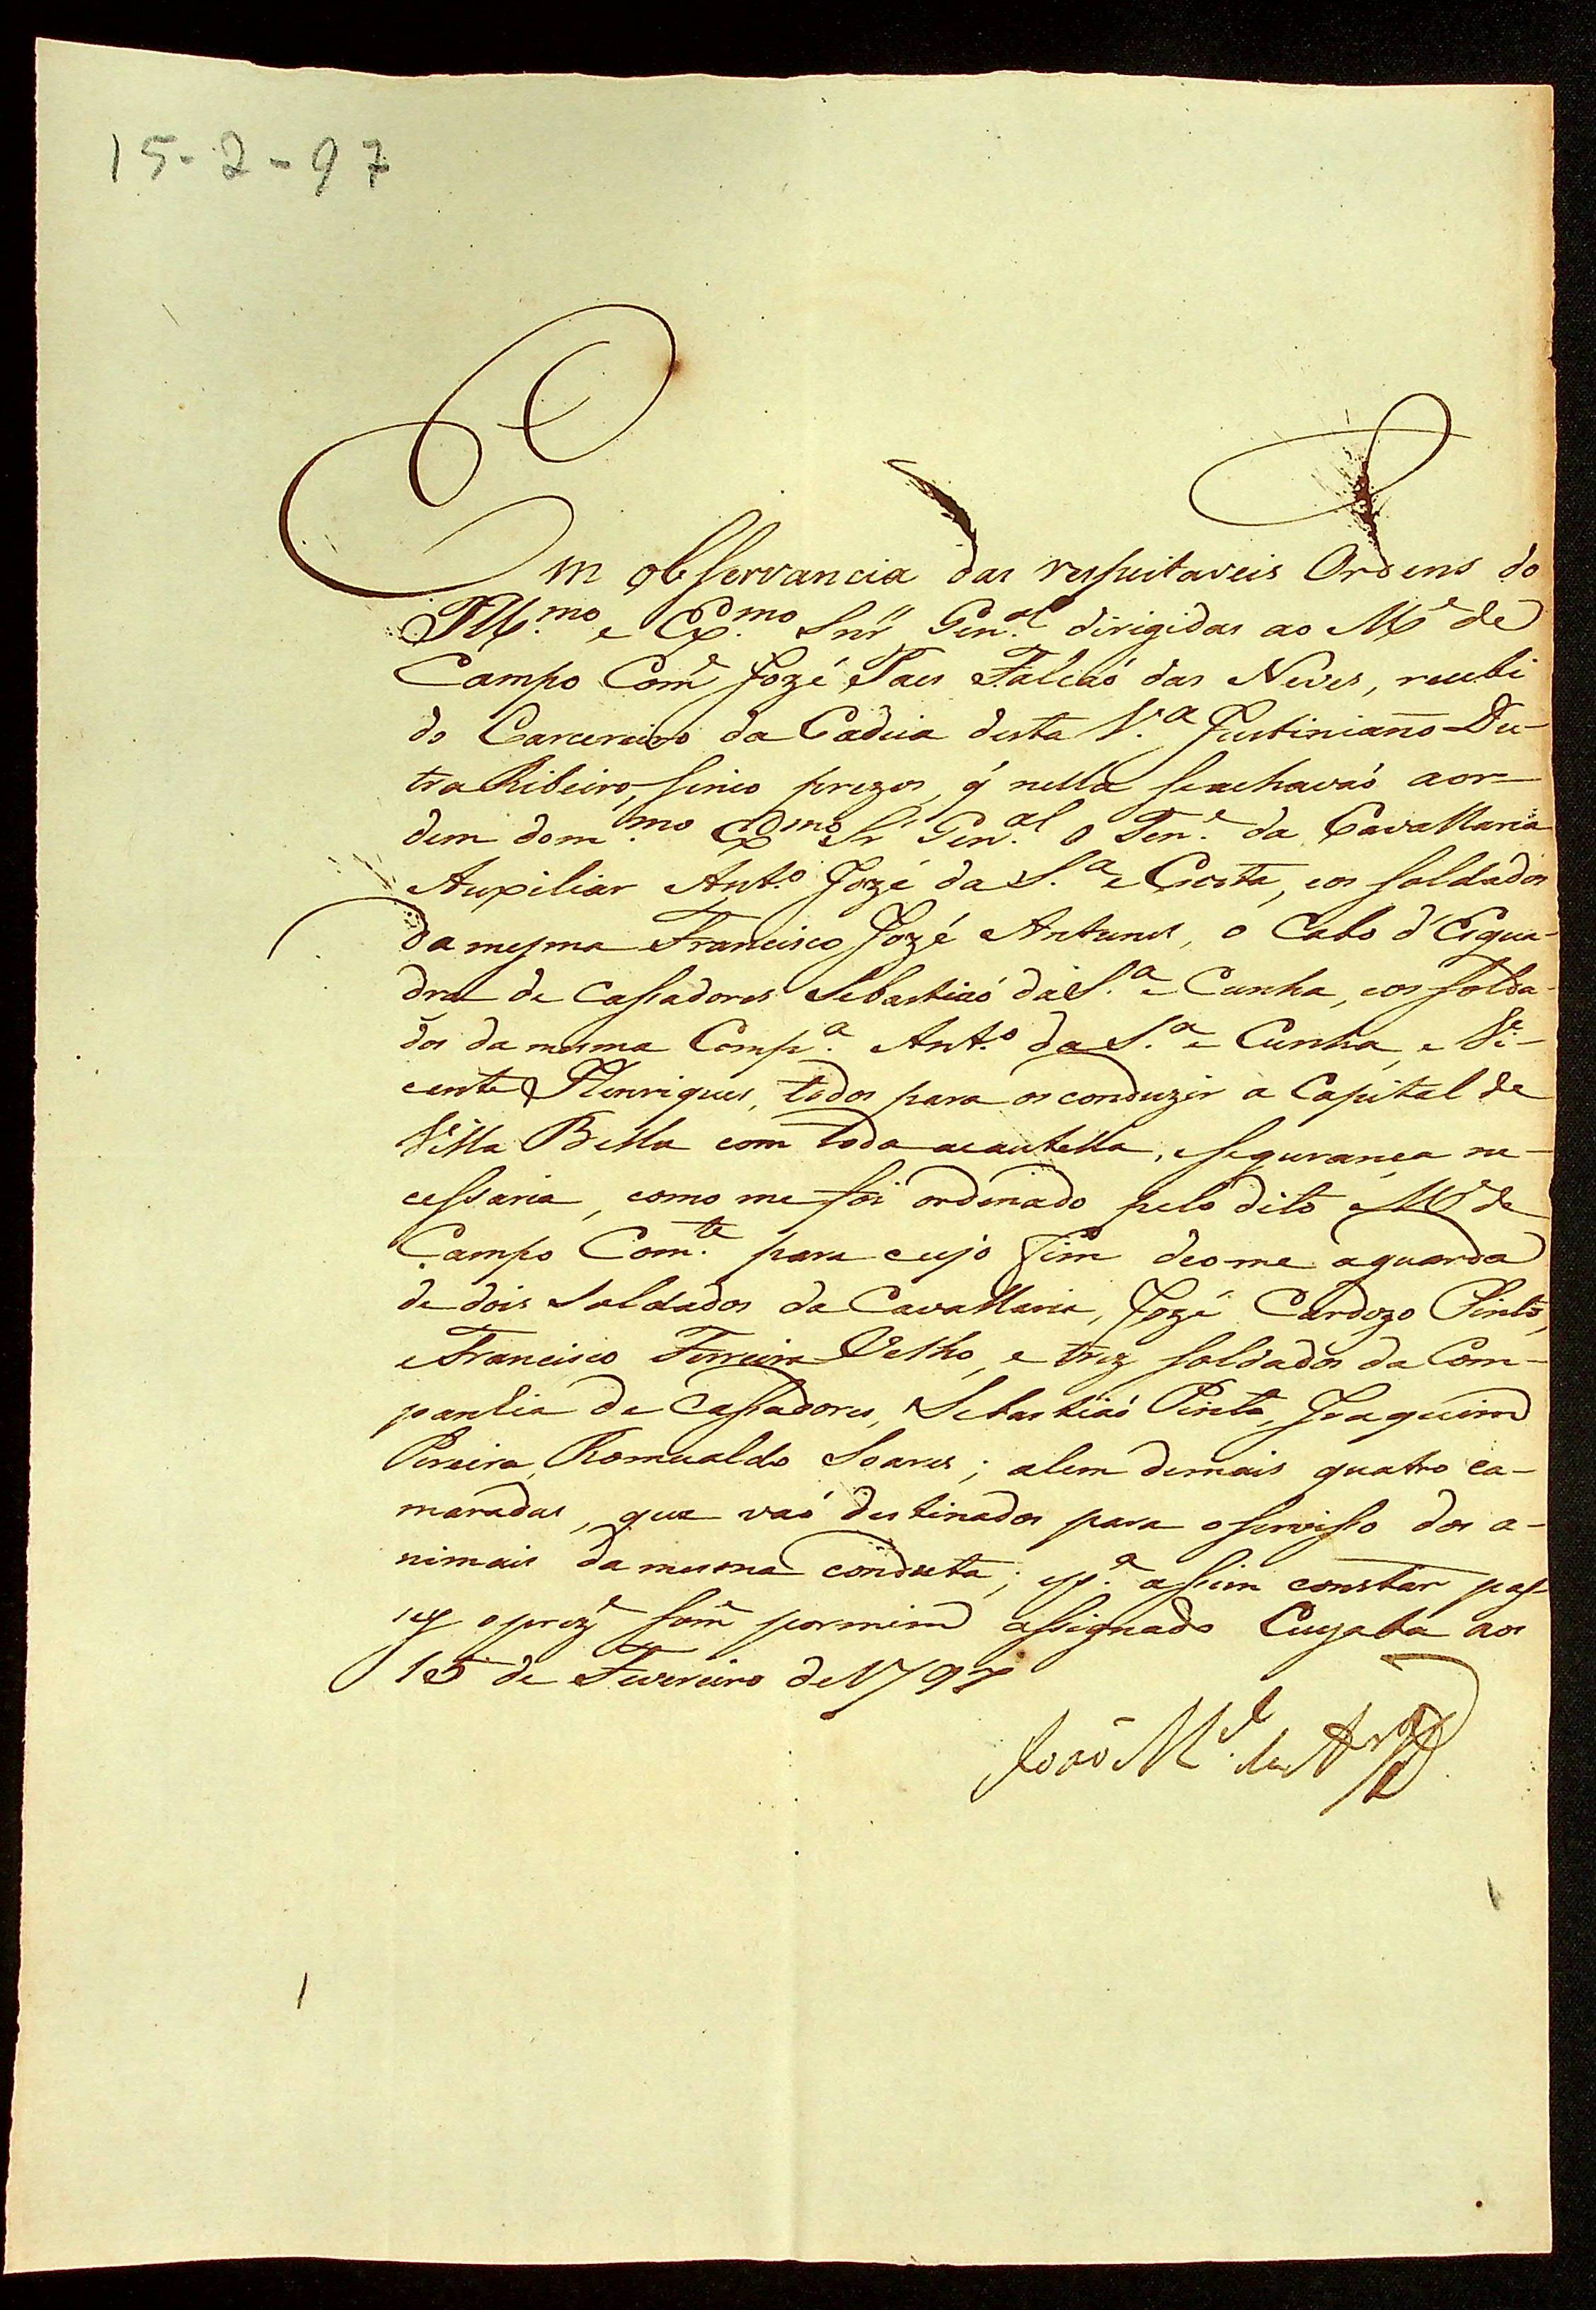 15-2-97
Em observancia das respeitaveis Ordens do
Ill.mo e Ex.mo Snr Gen.al dirigidas ao M.e de
Campo Com.e Jozé Paes Falcaó das Neves, recebi
do Carcereiro da Cadeia desta V.a Justiniano Du-
tra Ribeiro, sinco prezos, q̃ nella seachavaó aor-
dem dom.mo Ex.mo Sr Gen.al o Ten.e da Cavallaria
Auxiliar Ant.o Jozé da S.a e Costa, eos soldados
damesma Francisco Jozé Antunes, o Cabo d'Esqua-
dra de Cassadores Sebastiaó da S.a e Cunha, eos solda-
dos da mesma Comp.a Ant.o da S.a e Cunha, e Vi-
cente Henriques, todos para os conduzir a Capital de
Villa Bella com toda acautella, esegurança ne-
cessaria, como me foi ordenado pelo dito M.e de
Campo Com.te para cujo fim deome aguarda
de dois Soldados da Cavallaria, Jozé Cardozo Pinto,
eFrancisco Ferreira Velho, e trez soldados da Com-
panhia de Cassadores, Sebastiaó Pinto, Joaquim
Pereira, Romualdo Soares; alem demais quatro ca-
maradas, que vaó destinados para oservisso dos a-
nimais damesma conducta; ep.a assim constar pas-
sey oprez.e som.e pormim assignado Cuyaba aos
15 de Fevereiro de 1797
João M.el